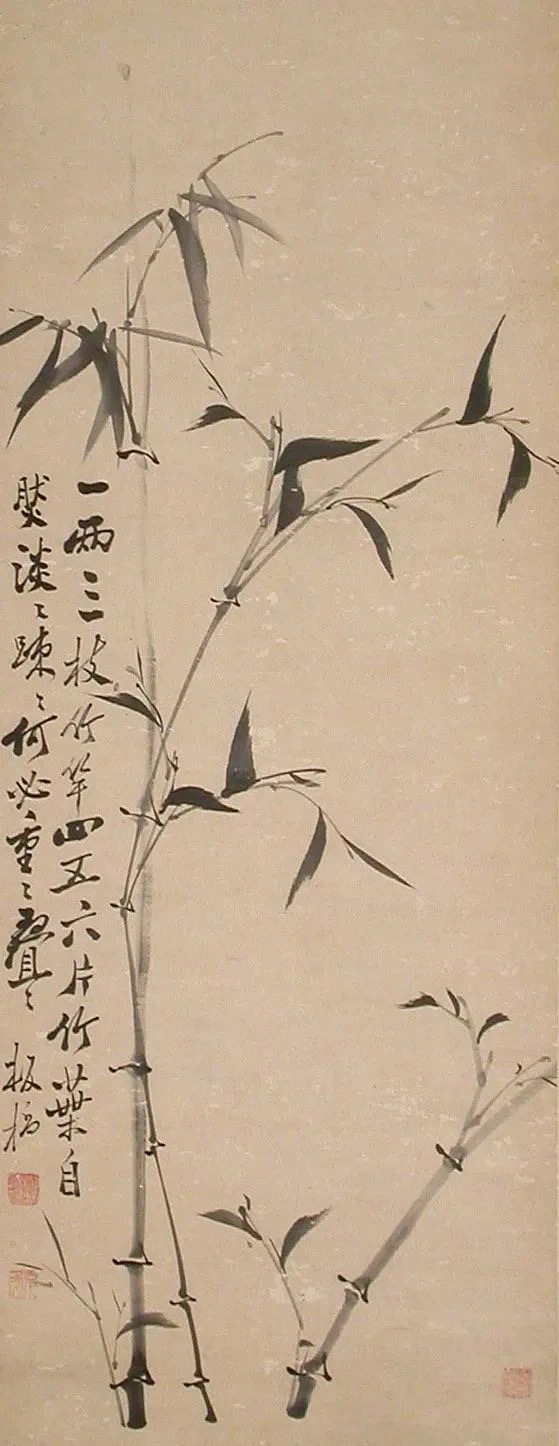 一兩三枝竹竿四五六片竹葉自
然淡〻踈〻何必重〻疊〻 板橋